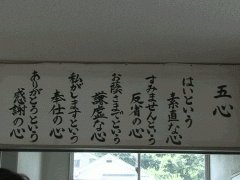 五心
はいという
素直な心
すみませんという
反省の心
お陰さまでという
謙虚な心
私がしますという
奉仕の心
ありがとうという
感謝の心